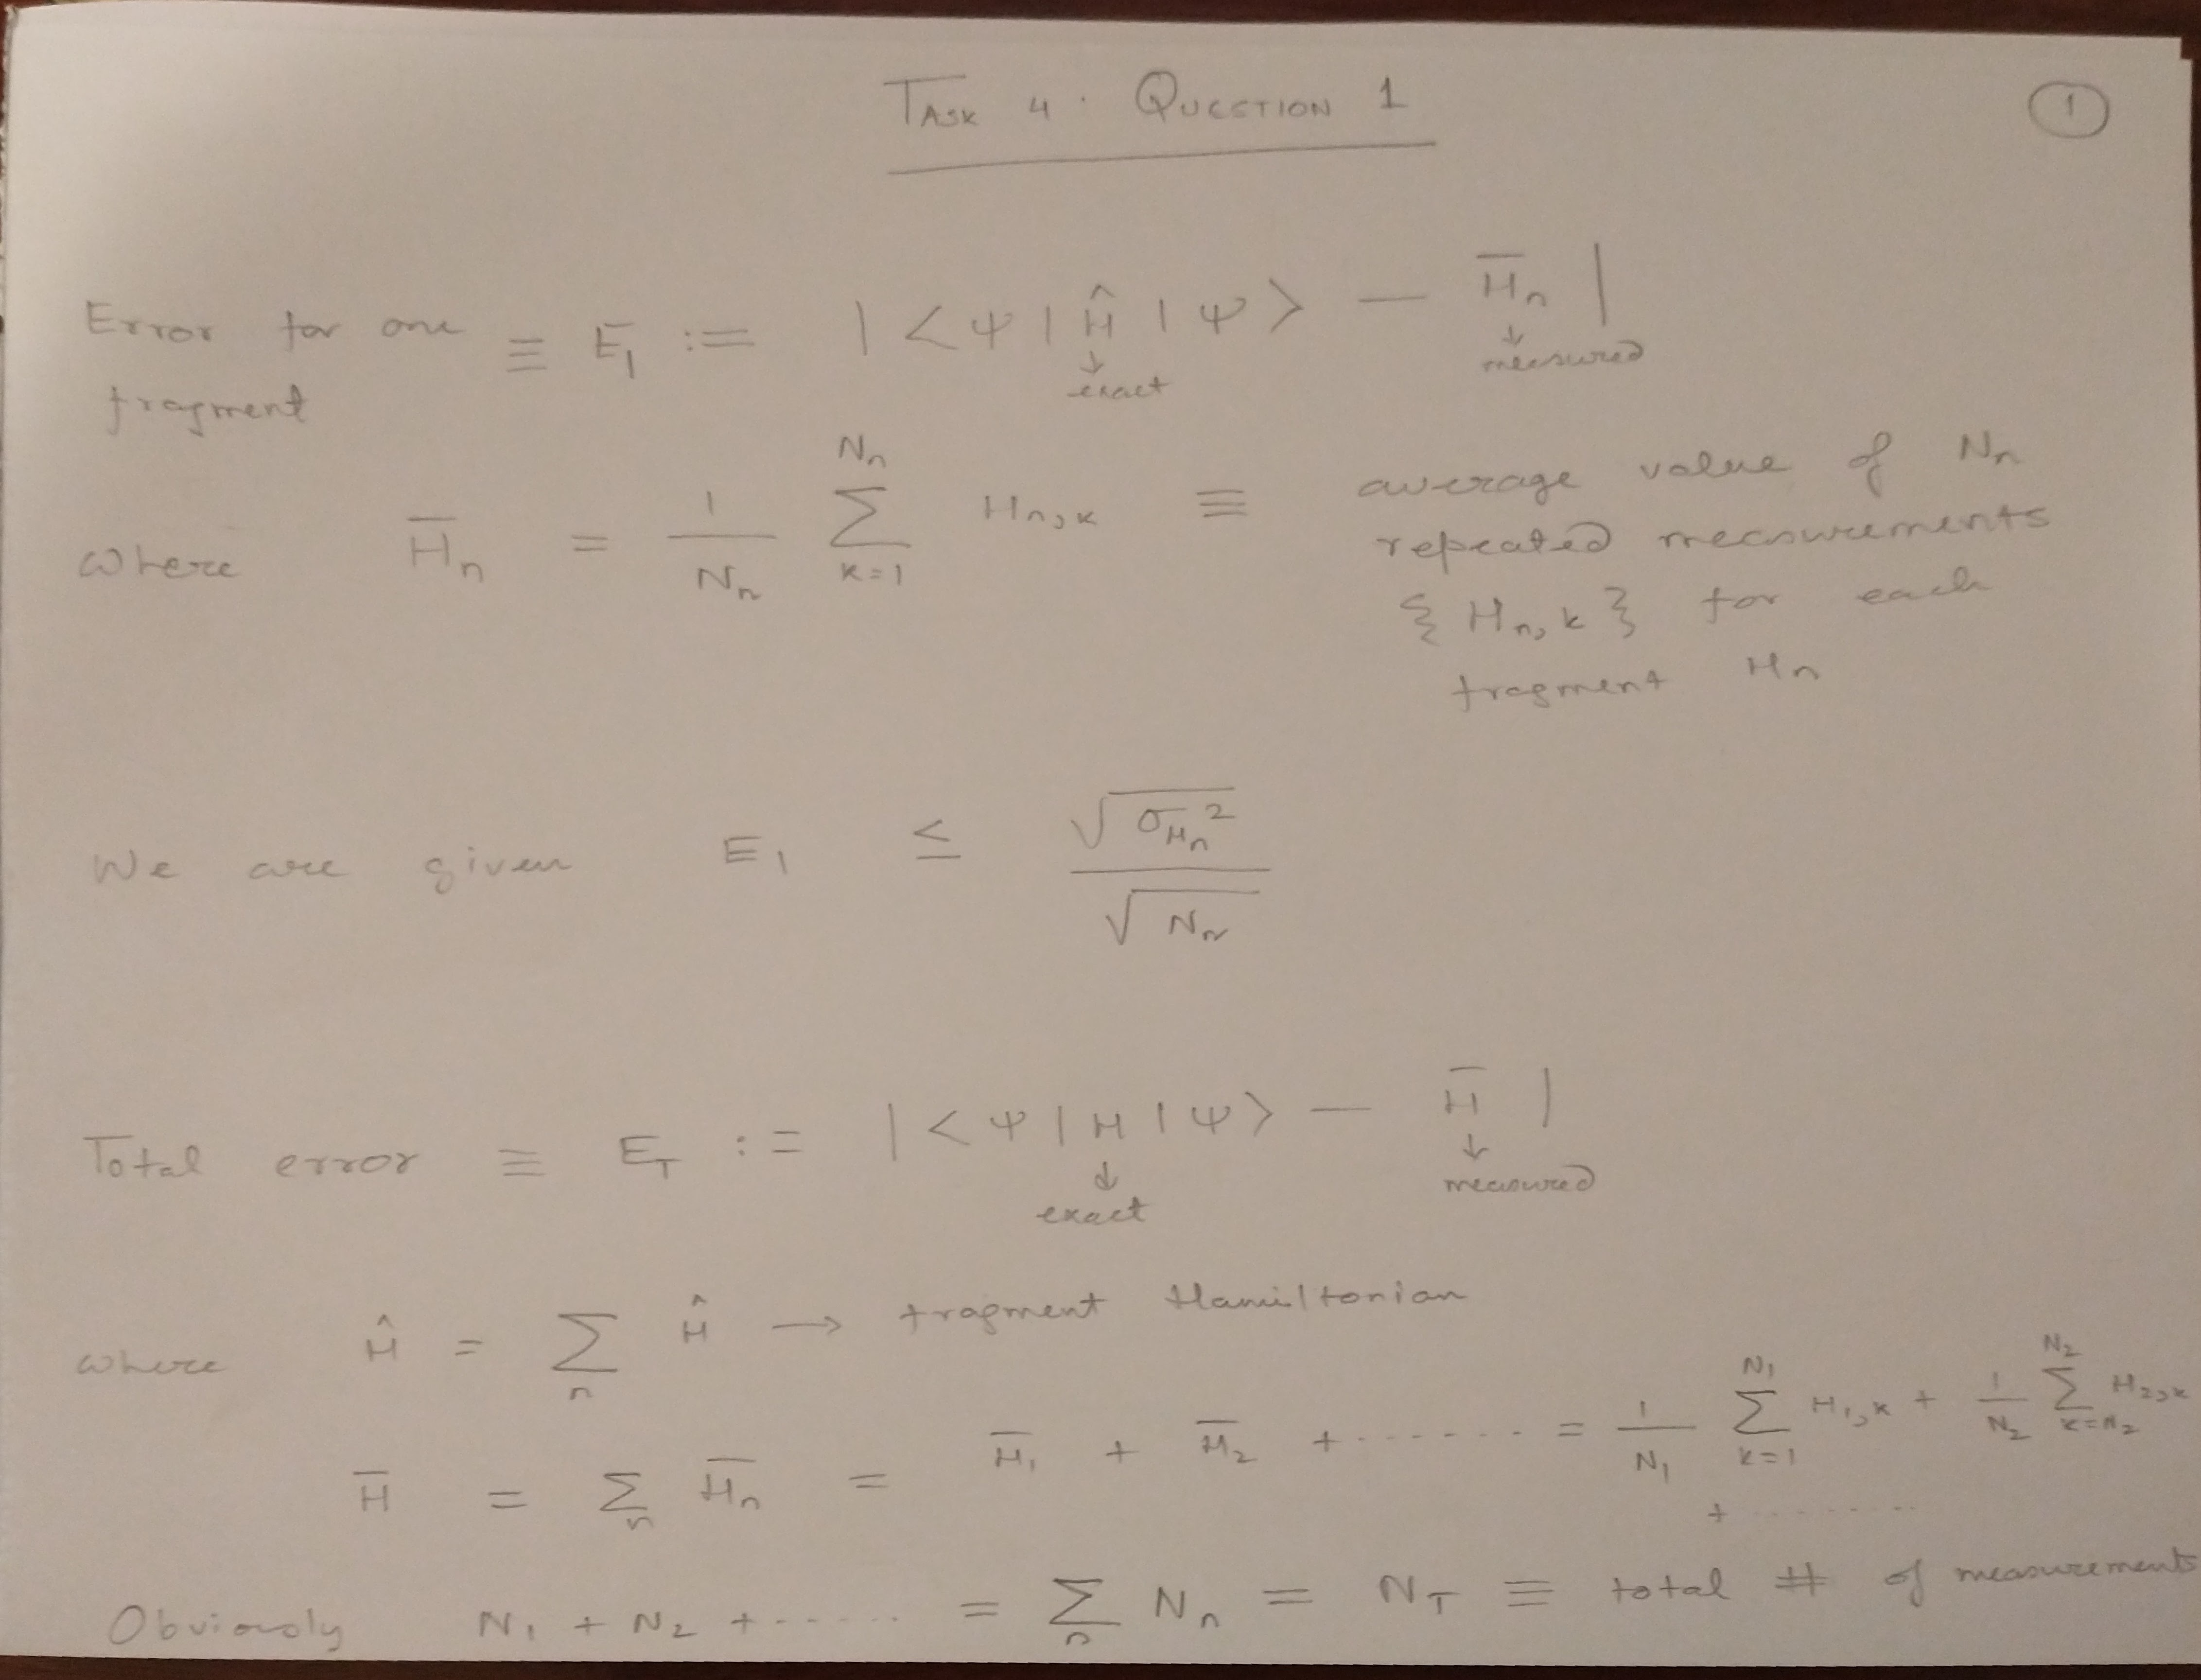 TASK 4 : QUESTION 1
1
Error for one fragment ≡ E₁ := | <ψ| Ĥ |ψ> − H̅ₙ |
exact measured
where H̅ₙ = 1/Nₙ Σ_{k=1}^{Nₙ} Hₙ,ₖ ≡ average value of Nₙ
repeated measurements
{ Hₙ,ₖ } for each
fragment Hₙ
We are given E₁ ≤ √(σ_{Hₙ}²) / √(Nₙ)
Total error ≡ E_T := | <ψ| H |ψ> − H̅ |
exact measured
where Ĥ = Σₙ Ĥ → fragment Hamiltonian
H̅ = Σₙ H̅ₙ = H̅₁ + H̅₂ + ...... = 1/N₁ Σ_{k=1}^{N₁} H₁,ₖ + 1/N₂ Σ_{k=N₂}^{N₂} H₂,ₖ
+ ........
Obviously N₁ + N₂ + ...... = Σₙ Nₙ = N_T ≡ total # of measurements